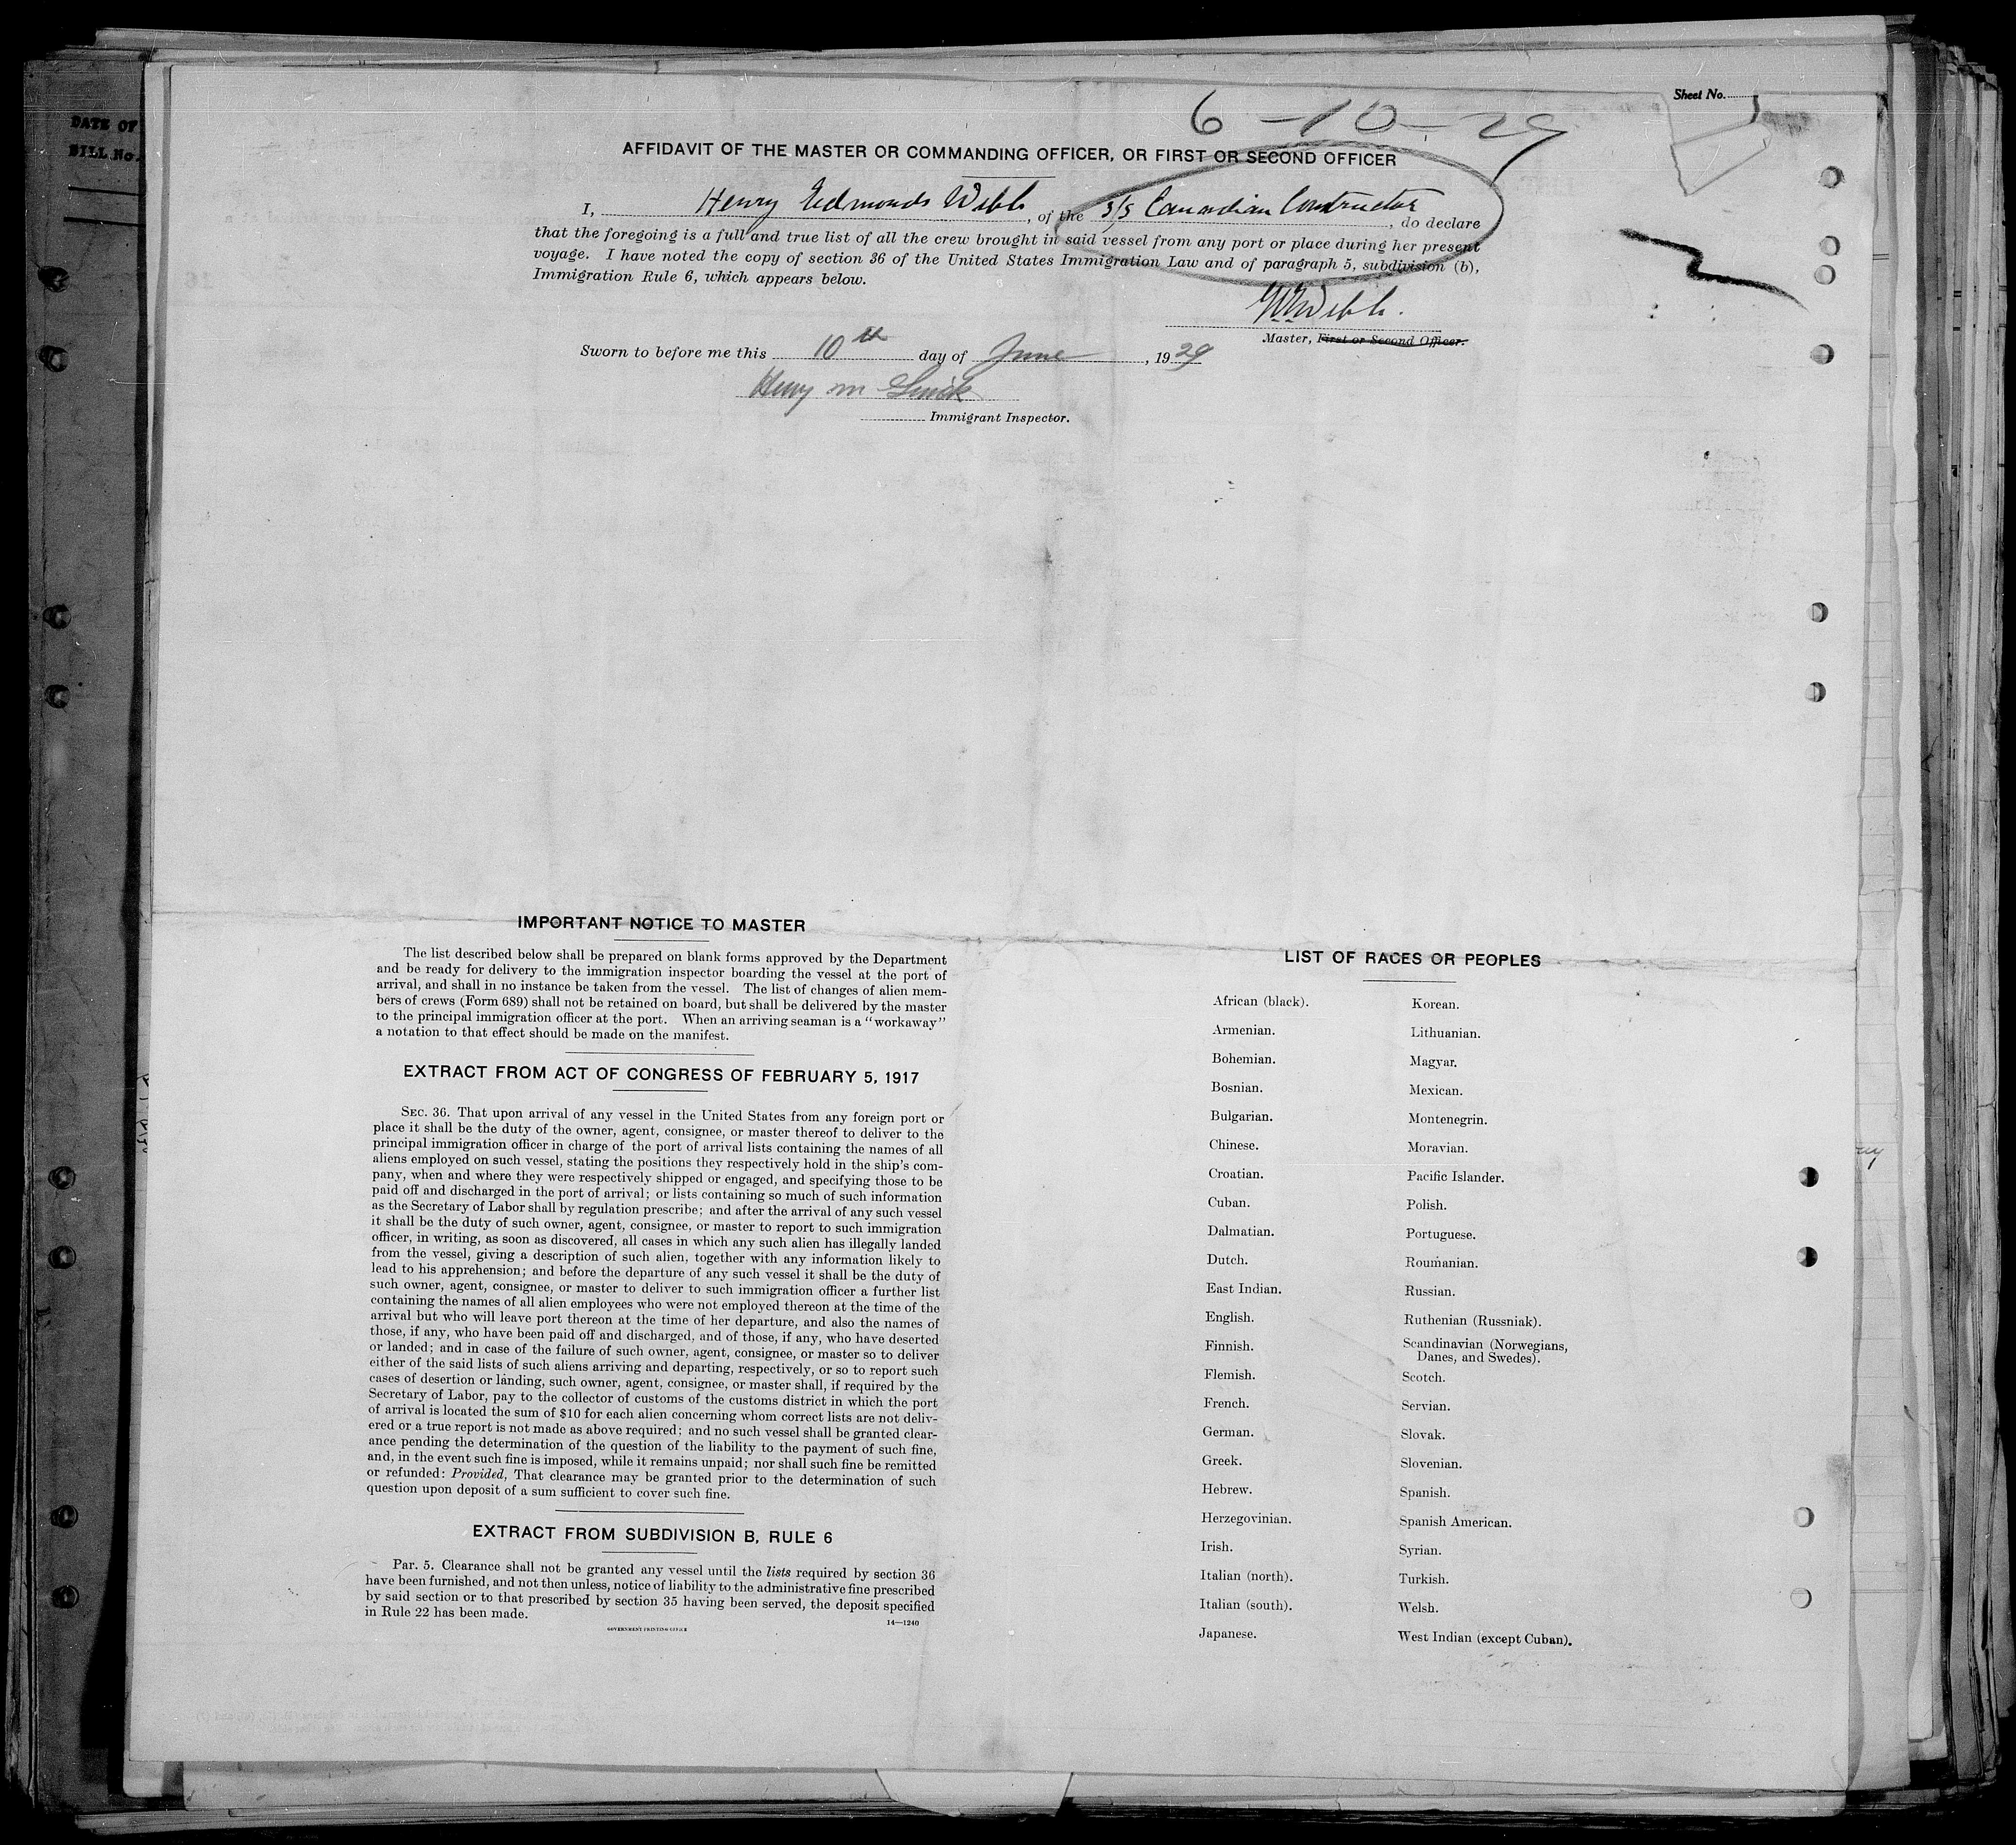 DATE OF
BILL No.
Sheet No.
6-10-29
AFFIDAVIT OF THE MASTER OR COMMANDING OFFICER, OR FIRST OR SECOND OFFICER
I, Henry Edmonds Webb, of the S/S Canadian Constructor, do declare
that the foregoing is a full and true list of all the crew brought in said vessel from any port or place during her present
voyage. I have noted the copy of section 36 of the United States Immigration Law and of paragraph 5, subdivision (b),
Immigration Rule 6, which appears below.
Webb.
Master, First or Second Officer.
Sworn to before me this 10th day of June, 1929
Henry M
Immigrant Inspector.
IMPORTANT NOTICE TO MASTER
The list described below shall be prepared on blank forms approved by the Department
and be ready for delivery to the immigration inspector boarding the vessel at the port of
arrival, and shall in no instance be taken from the vessel. The list of changes of alien mem-
bers of crews (Form 689) shall not be retained on board, but shall be delivered by the master
to the principal immigration officer at the port. When an arriving seaman is a "workaway"
a notation to that effect should be made on the manifest.
EXTRACT FROM ACT OF CONGRESS OF FEBRUARY 5, 1917
SEC. 36. That upon arrival of any vessel in the United States from any foreign port or
place it shall be the duty of the owner, agent, consignee, or master thereof to deliver to the
principal immigration officer in charge of the port of arrival lists containing the names of all
aliens employed on such vessel, stating the positions they respectively hold in the ship's com-
pany, when and where they were respectively shipped or engaged, and specifying those to be
paid off and discharged in the port of arrival; or lists containing so much of such information
as the Secretary of Labor shall by regulation prescribe; and after the arrival of any such vessel
it shall be the duty of such owner, agent, consignee, or master to report to such immigration
officer, in writing, as soon as discovered, all cases in which any such alien has illegally landed
from the vessel, giving a description of such alien, together with any information likely to
lead to his apprehension; and before the departure of any such vessel it shall be the duty of
such owner, agent, consignee, or master to deliver to such immigration officer a further list
containing the names of all alien employees who were not employed thereon at the time of the
arrival but who will leave port thereon at the time of her departure, and also the names of
those, if any, who have been paid off and discharged, and of those, if any, who have deserted
or landed; and in case of the failure of such owner, agent, consignee, or master so to deliver
either of the said lists of such aliens arriving and departing, respectively, or so to report such
cases of desertion or landing, such owner, agent, consignee, or master shall, if required by the
Secretary of Labor, pay to the collector of customs of the customs district in which the port
of arrival is located the sum of $10 for each alien concerning whom correct lists are not deliv-
ered or a true report is not made as above required; and no such vessel shall be granted clear-
ance pending the determination of the question of the liability to the payment of such fine,
and, in the event such fine is imposed, while it remains unpaid; nor shall such fine be remitted
or refunded: Provided, That clearance may be granted prior to the determination of such
question upon deposit of a sum sufficient to cover such fine.
EXTRACT FROM SUBDIVISION B, RULE 6
Par. 5. Clearance shall not be granted any vessel until the lists required by section 36
have been furnished, and not then unless, notice of liability to the administrative fine prescribed
by said section or to that prescribed by section 35 having been served, the deposit specified
in Rule 22 has been made.
14—1240
GOVERNMENT PRINTING OFFICE
LIST OF RACES OR PEOPLES
African (black).
Armenian.
Bohemian.
Bosnian.
Bulgarian.
Chinese.
Croatian.
Cuban.
Dalmatian.
Dutch.
East Indian.
English.
Finnish.
Flemish.
French.
German.
Greek.
Hebrew.
Herzegovinian.
Irish.
Italian (north).
Italian (south).
Japanese.
Korean.
Lithuanian.
Magyar.
Mexican.
Montenegrin.
Moravian.
Pacific Islander.
Polish.
Portuguese.
Roumanian.
Russian.
Ruthenian (Russniak).
Scandinavian (Norwegians,
Danes, and Swedes).
Scotch.
Servian.
Slovak.
Slovenian.
Spanish.
Spanish American.
Syrian.
Turkish.
Welsh.
West Indian (except Cuban).